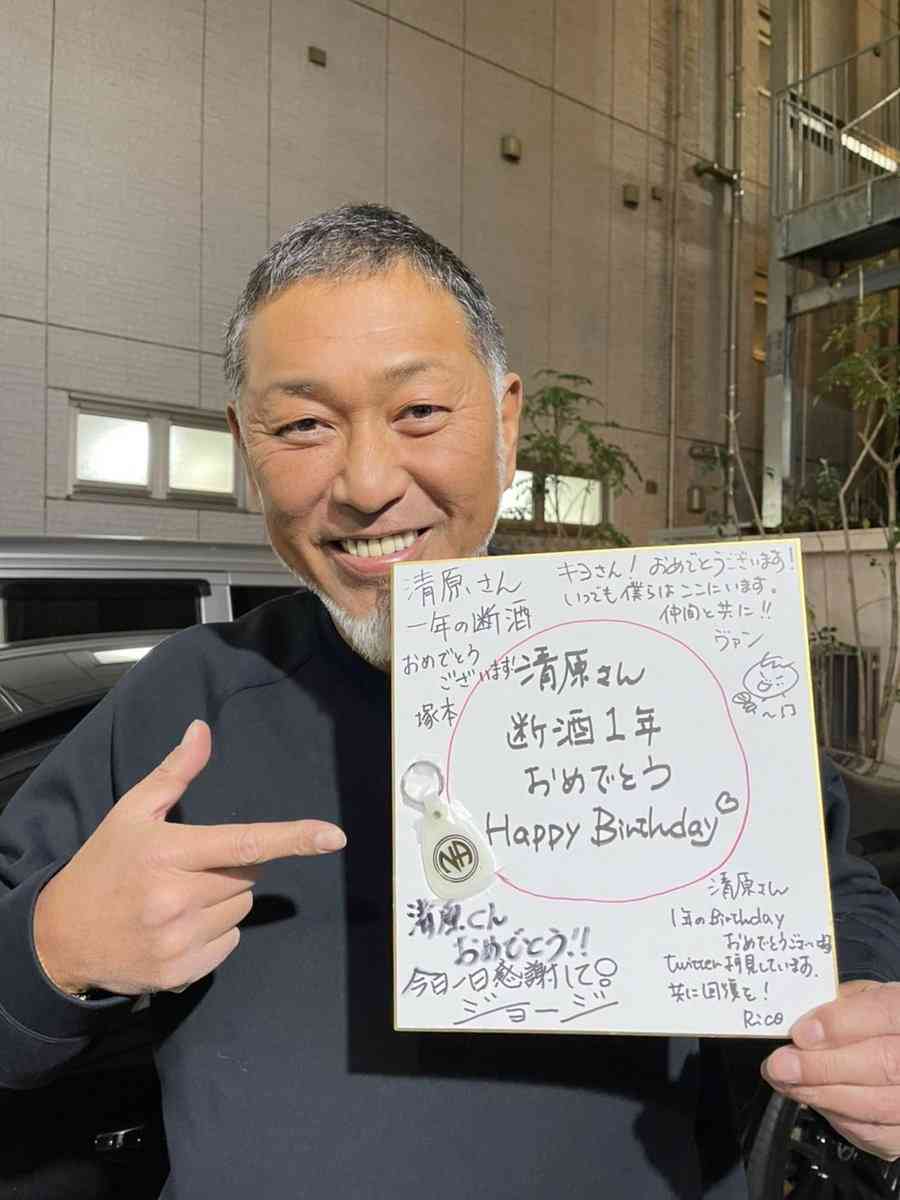 清原さん
一年の断酒
おめでとう
ございます!
塚本
キヨさん! おめでとうございます!
いつでも僕らはここにいます。
仲間と共に!!
ヴァン
清原さん
断酒1年
おめでとう
Happy Birthday
NA
清原くん
おめでとう!!
今日一日感謝して
ジョージ
清原さん
1年のBirthday
おめでとうございます
twitter拝見しています。
共に回復を!
Rico